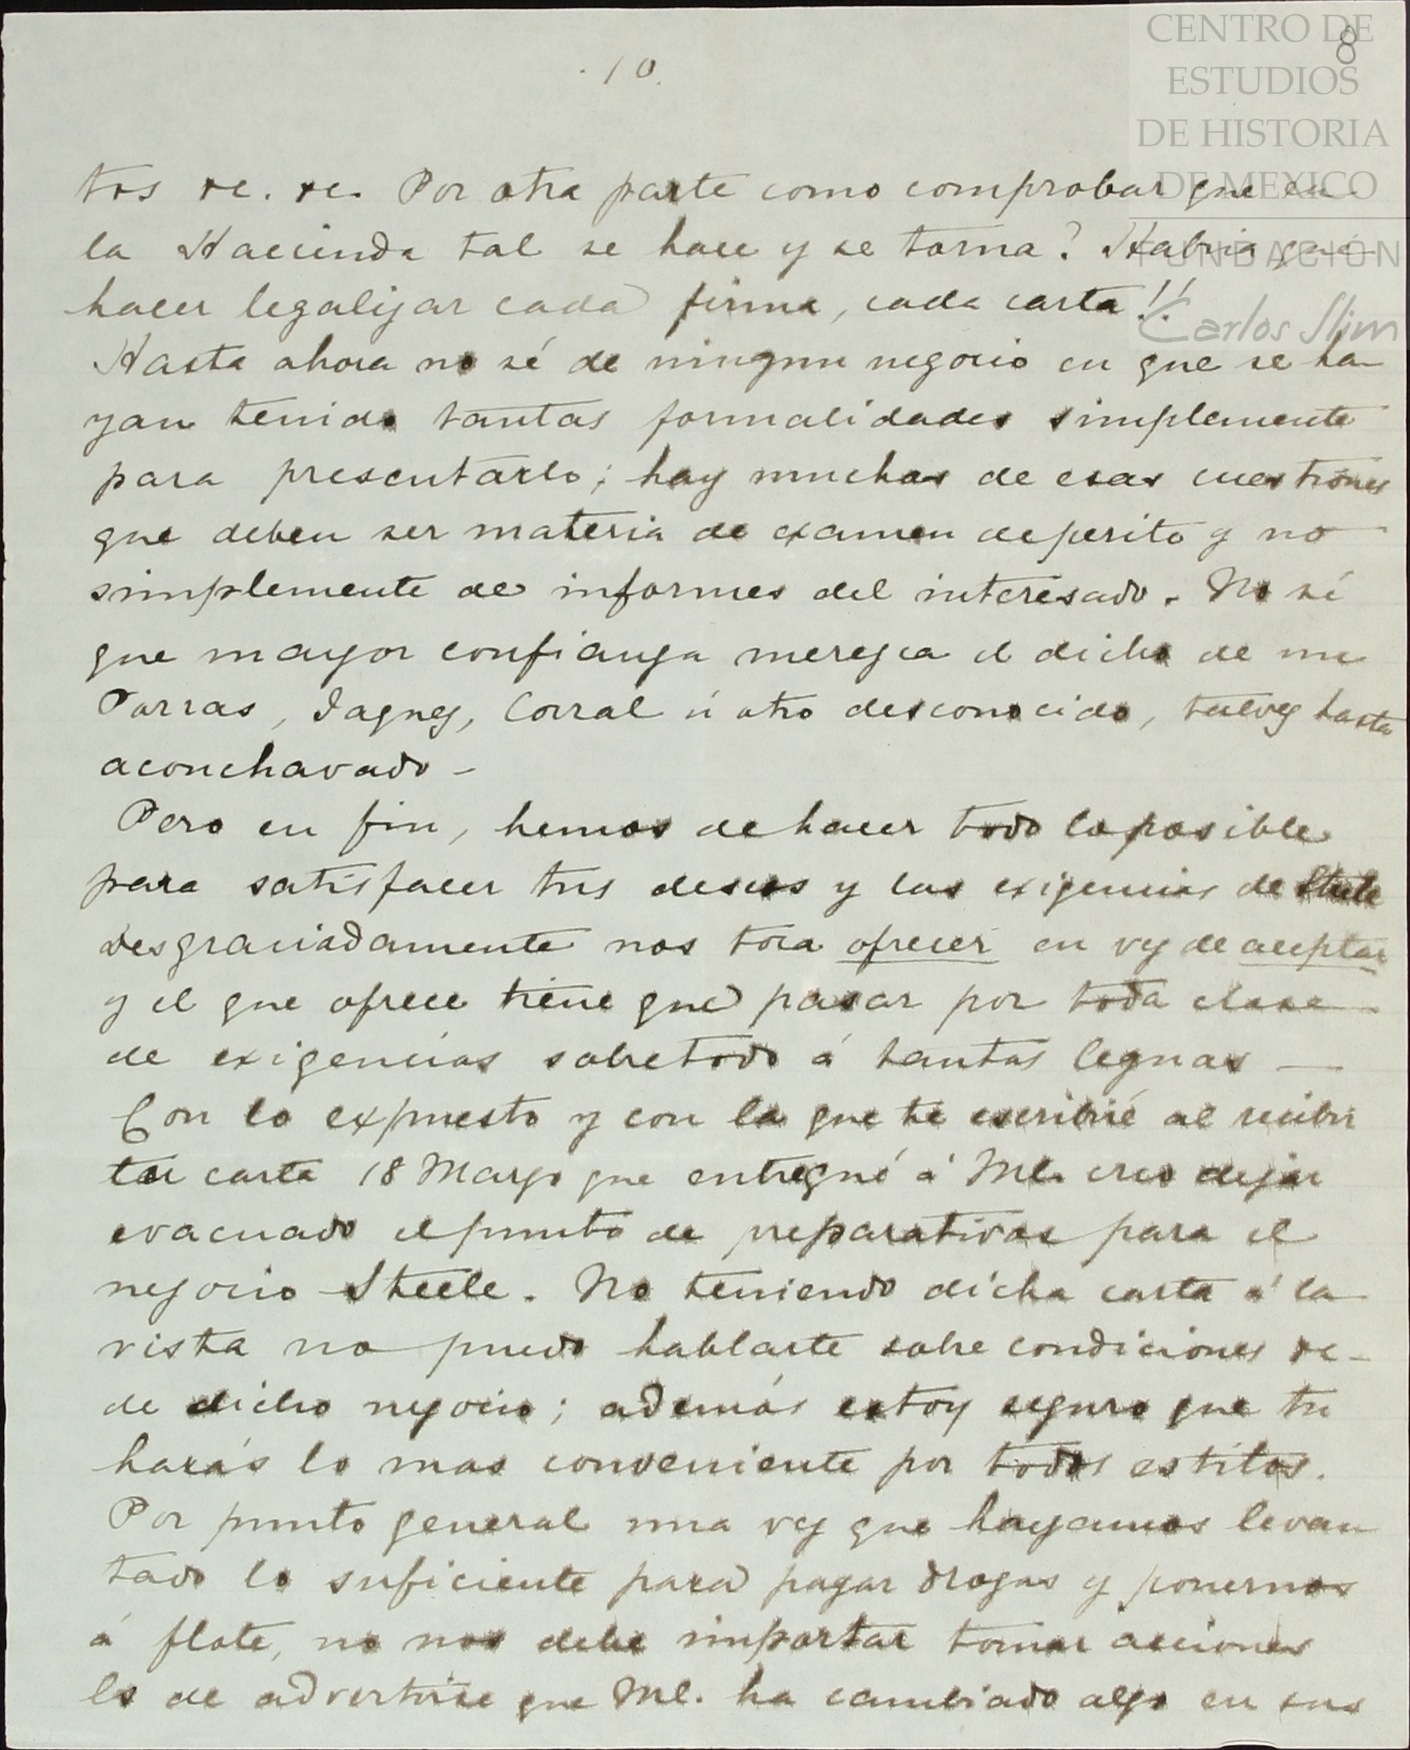 10.
8
CENTRO DE
ESTUDIOS
DE HISTORIA
DE MEXICO
FUNDACIÓN
Carlos Slim
tos &c. &c. Por otra parte como comprobar que en
la Hacienda tal se hace y se torna? Habria que
hacer legalizar cada firma, cada carta!!
Hasta ahora no sé de ningun negocio en que se ha
yan tenido tantas formalidades simplemente
para presentarlo; hay muchas de esas cuestiones
que deben ser materia de examen de perito y no
simplemente de informes del interesado. No sé
que mayor confianza merezca el dicho de un
Parras, Jaquez, Corral ú otro desconocido, talvez hasta
aconchavado –
Pero en fin, hemos de hacer todo lo posible
para satisfacer tus deseos y las exigencias de Steele
Desgraciadamente nos toca ofrecer en vez de aceptar
y el que ofrece tiene que pasar por toda clase
de exigencias sobre todo á tantas leguas —
Con lo expuesto y con la que te escribiré al recibir
tu carta 18 Marzo que entregué á Ml. creo dejar
evacuado el punto de preparativos para el
negocio Steele. No teniendo dicha carta á la
vista no puedo hablarte sobre condiciones &c–
de dicho negocio; además estoy seguro que tu
harás lo mas conveniente por todos estilos.
Por punto general una vez que hayamos levan
tado lo suficiente para pagar drogas y ponernos
á flote, no nos debe importar tomar acciones
Es de advertirse que Ml. ha cambiado algo en sus